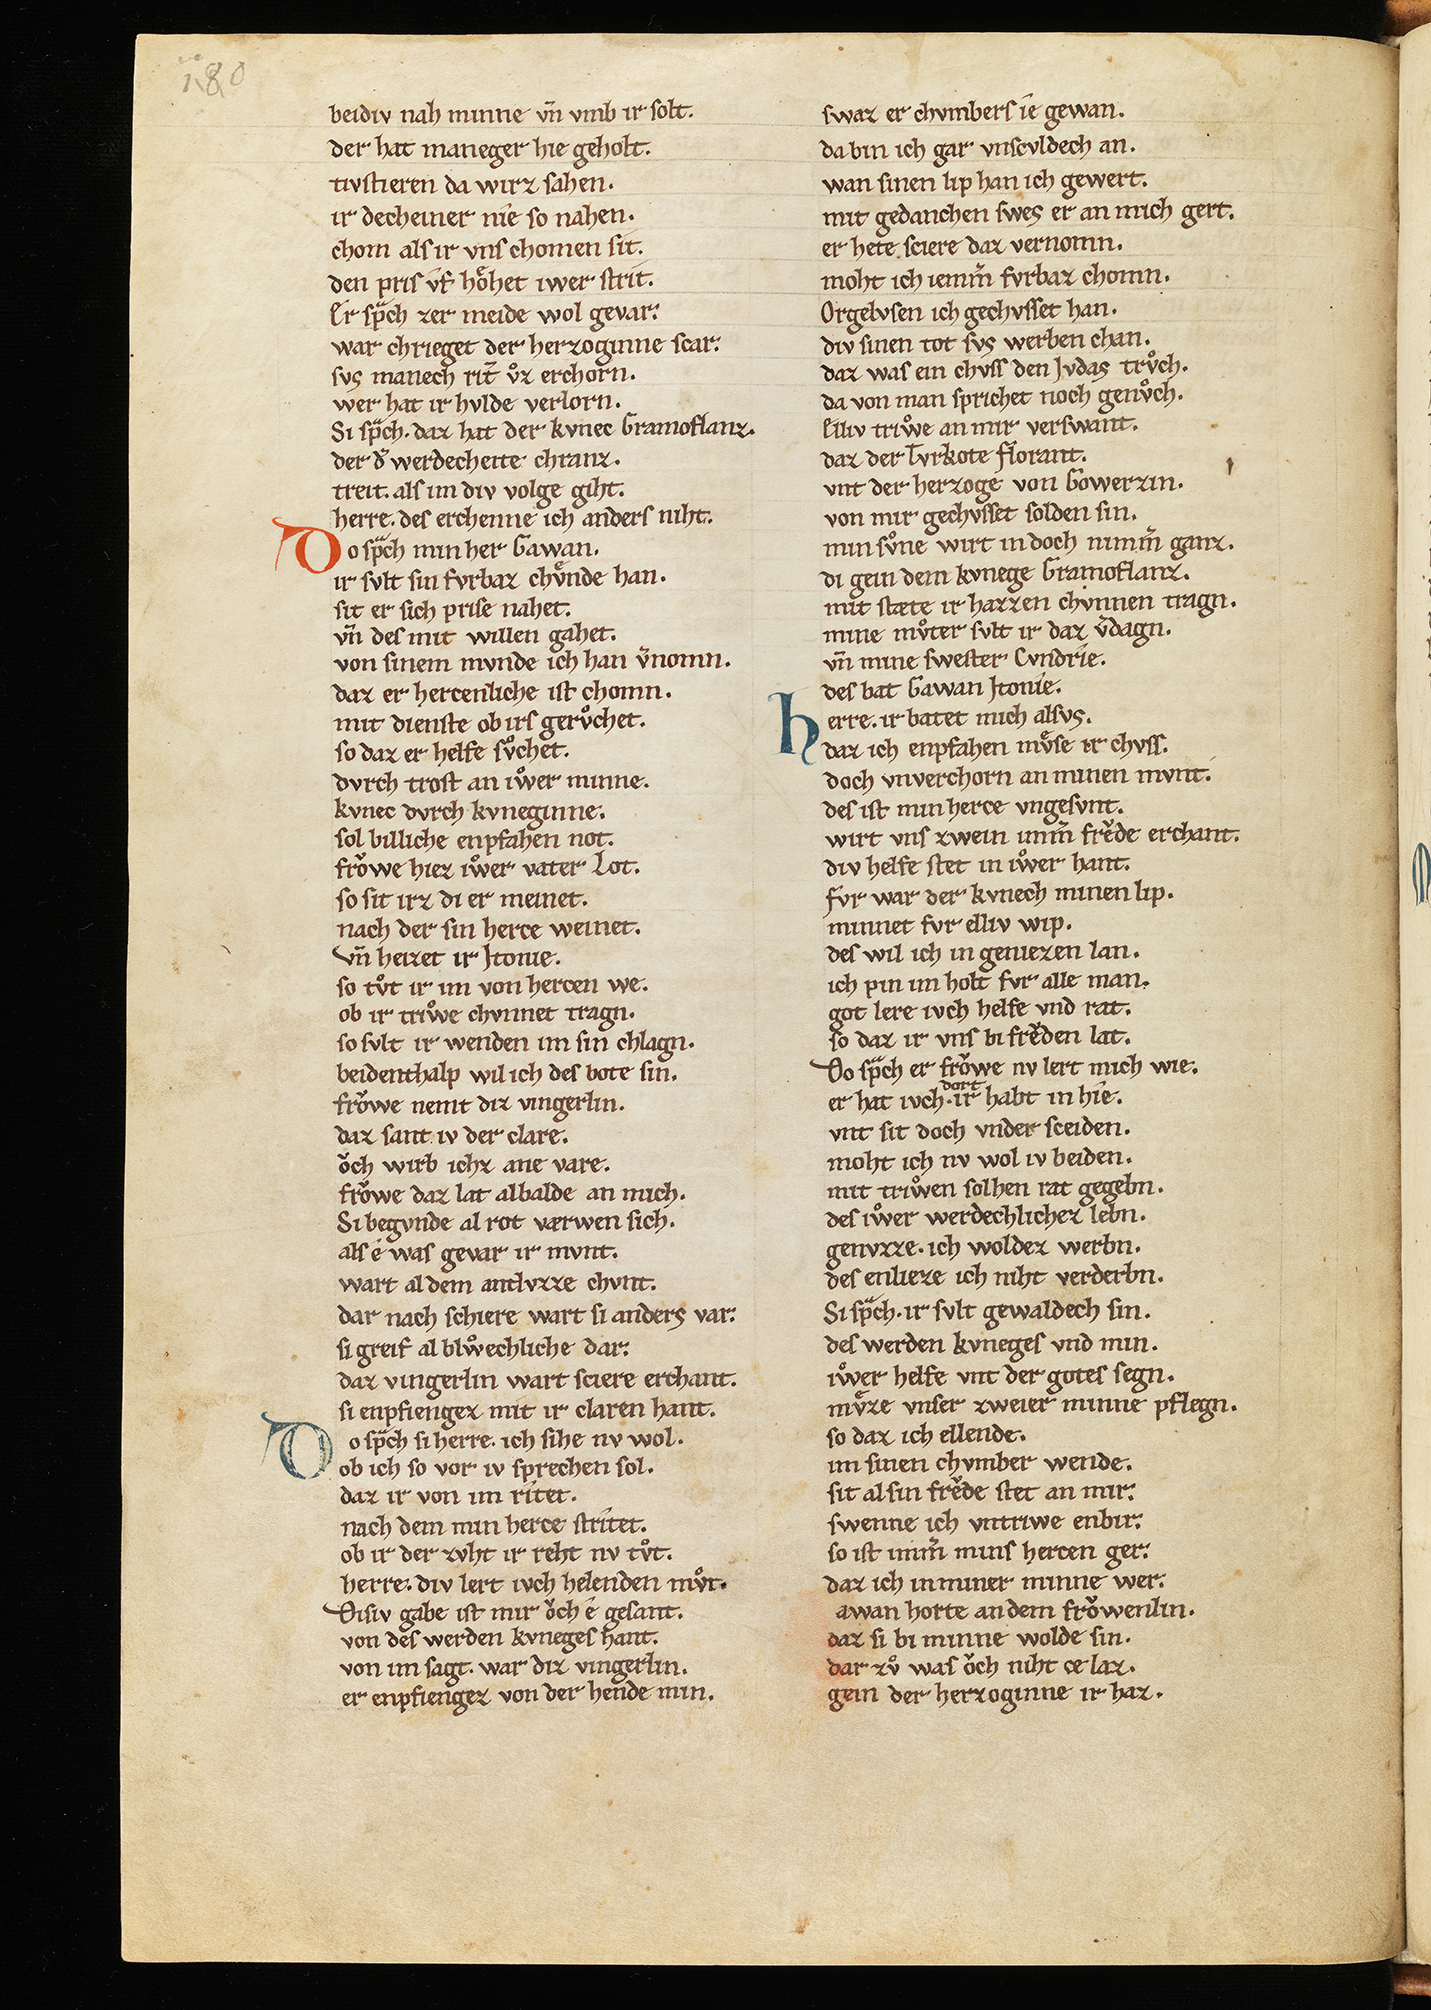 180
beidiv nah minne vn̄ vmb ir solt.
der hat maneger hie geholt.
tivstieren da wirz sahen.
ir decheiner nie so nahen.
chom als ir vns chomen sit.
den pris vf hoͤhet iwer strit.
Er sp̄ch zer meide wol gevar.
war chrieget der herzoginne scar.
svs manech rit̄ vͦz erchorn.
wer hat ir hvlde verlorn.
Si sp̄ch. daz hat der kvnec Gramoflanz.
der d̄ werdecheite chranz.
treit. als im div volge giht.
herre. des erchenne ich anders niht.
Do sp̄ch min her Gawan.
ir svlt sin fvrbaz chvͤnde han.
sit er sich prise nahet.
vn̄ des mit willen gahet.
von sinem mvnde ich han v̄nomn.
daz er hercenliche ist chomn.
mit dienste ob irs gervͦchet.
so daz er helfe svͦchet.
dvrch trost an iwͦer minne.
kvnec dvrch kvneginne.
sol billiche enpfahen not.
froͮwe hiez iwͦer vater Lot.
so sit irz di er meinet.
nach der sin herce weinet.
vn̄ heizet ir Jtonie.
so tvͦt ir im von hercen we.
ob ir triwͦe chvnnet tragn.
so svlt ir wenden im sin chlagn.
beidenthalp wil ich des bote sin.
froͮwe nemt diz vingerlin.
daz sant iv der clare.
oͮch wirb ichz ane vare.
froͮwe daz lat albalde an mich.
Si begvnde al rot værwen sich.
als e was gevar ir mvnt.
wart al dem antlvzze chvnt.
dar nach schiere wart si anders var.
si greif al blwͦechliche dar.
daz vingerlin wart sciere erchant.
si enpfiengez mit ir claren hant.
Do sp̄ch si herre. ich sihe nv wol.
ob ich so vor iv sprechen sol.
daz ir von im ritet.
nach dem min herce stritet.
ob ir der zvht ir reht nv tvͦt.
herre. div lert ivch helenden mvͦt.
Disiv gabe ist mir oͮch e gesant.
von des werden kvneges hant.
von im sagt. war diz vingerlin.
er enpfiengez von der hende min.
swaz er chvmbers ie gewan.
da bin ich gar vnscvldech an.
wan sinen lip han ich gewert.
mit gedanchen swes er an mich gert.
er hete sciere daz vernomn.
moht ich iemm̄ fvrbaz chomn.
Orgelvsen ich gechvsset han.
div sinen tot svs werben chan.
daz was ein chvss den Jvdas trvͦch.
da von man sprichet noch genvͦch.
Elliv triwͦe an mir verswant.
daz der Tvrkote florant.
vnt der herzoge von Gowerzin.
von mir gechvsset solden sin.
min svͦne wirt in doch nimm̄ ganz.
di gein dem kvnege Gramoflanz.
mit stæte ir hazzen chvnnen tragn.
mine mvͦter svlt ir daz v̄dagn.
vn̄ mine swester Cvndrie.
des bat Gawan Jtonie.
herre. ir batet mich alsvs.
daz ich enpfahen mvͤse ir chvss.
doch vnverchorn an minen mvnt.
des ist min herce vngesvnt.
wirt vns zwein imm̄ freͮde erchant.
div helfe stet in iwͦer hant.
fvr war der kvnech minen lip.
minnet fvr elliv wip.
des wil ich in geniezen lan.
ich pin im holt fvr alle man.
got lere ivch helfe vnd rat.
so daz ir vns bi freͮden lat.
Do sp̄ch er froͮwe nv lert mich wie.
er hat ivch dort. ir habt in hie.
vnt sit doch vnder sceiden.
moht ich nv wol iv beiden.
mit triwͦen solhen rat gegebn.
des iwͦer werdechlichez lebn.
genvzze. ich woldez werbn.
des enlieze ich niht verderbn.
Si sp̄ch. ir svlt gewaldech sin.
des werden kvneges vnd min.
iwͦer helfe vnt der gotes segn.
mvͤze vnser zweier minne pflegn.
so daz ich ellende.
im sinen chvmber wende.
sit al sin freͮde stet an mir.
swenne ich vntriwe enbir.
so ist imm̄ mins hercen ger.
daz ich in miner minne wer.
awan horte an dem froͮwenlin.
daz si bi minne wolde sin.
dar zvͦ was oͮch niht ce laz.
gein der herzoginne ir haz.